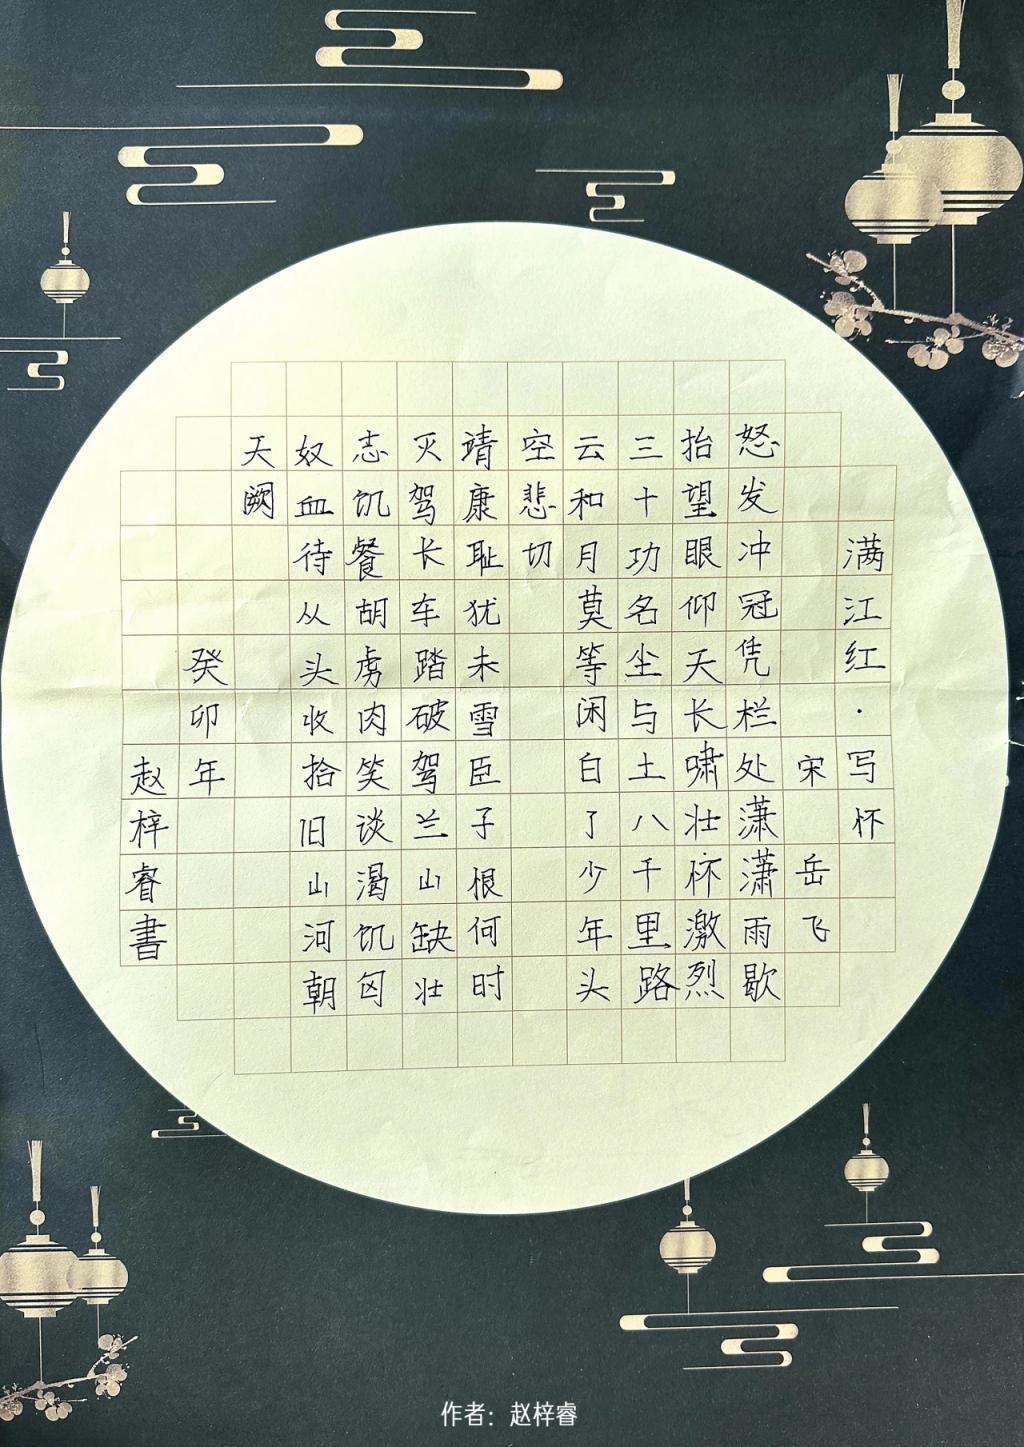 满江红·写怀
宋 岳飞
怒发冲冠凭栏处潇潇雨歇
抬望眼仰天长啸壮怀激烈
三十功名尘与土八千里路
云和月莫等闲白了少年头
空悲切
靖康耻犹未雪臣子恨何时
灭驾长车踏破驾兰山缺壮
志饥餐胡虏肉笑谈渴饥匈
奴血待从头收拾旧山河朝
天阙
癸卯年
赵梓睿書
作者：赵梓睿